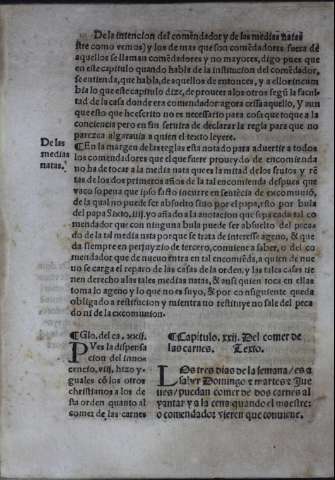 De la intencion del comẽdador y de las medias natas
stre como vemos) y los de mas que son comẽdadores fuera de
aquellos se llaman comẽdadores y no mayores, digo pues que
en este capitulo quando habla de la institucion del comẽdador,
se entienda, que habla, de aquellos de entonces, y a ellos incum
bia lo que este capitulo dize, de proueer a los otros segũ la facul
tad de la casa donde era comendador agora cessa aquello, Y aun
que esto que he escrito no es necessario para cosa que toque a la
conciencia pero en fin seruira de declarar la regla para que no
parezca algarauia a quien el texto leyere.
De las
medias
natas.
¶ En la margen de las reglas esta notado para aduertir a todos
los comendadores que el que fuere proueydo de encomienda
no ha de tocar a la media nata que es la mitad de los frutos y rẽ
tas de los dos primeros años de la tal encomienda despues que
vaco so pena que ipso facto incurre en sentẽcia de excomuniõ,
de la qual no puede ser absuelto sino por el papa, esto por bula
del papa Sixto, iiij. yo añado a la anotacion que sepa cada tal co
mendador que con ninguna bula puede ser absuelto del peca
do de la tal media nata porque se trata de interesse ageno, & que
da siempre en perjuyzio de tercero, conuiene a saber, o del co
mendador que de nueuo entra en tal encomiẽda, a quien de nue
uo se carga el reparo de las casas de la orden, y las tales casas tie
nen derecho a las tales medias natas, & assi quien toca en ellas
toma lo ageno y lo que no es suyo, & por consiguiente queda
obligado a restitucion y mientra no restituye no sale del peca
do ni de la excomunion.
¶ Glo. del ca. xxij.
PVes la dispensa
cion del innos
cencio, viij, hizo y-
guales cõ los otros
christianos a los de
sta orden quanto al
comer de las carnes
¶ Capitulo. xxij. Del comer de
las carnes. Texto.
LOs tres dias de la semana/ es a
saber Domingo & martes & Jue
ues/ puedan comer de dos carnes al
yantar y a la cena quando el maestre:
o comendador vieren que conuiene.